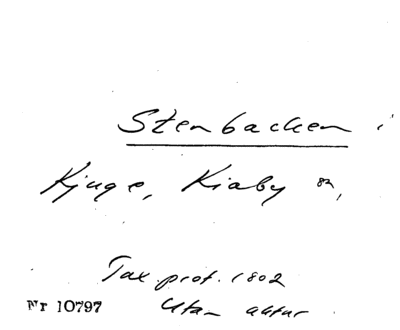 Stenbacken i
Kjuge, Kiaby sn,
Tax. prot. 1802
Nr 10797 Utan aktnr